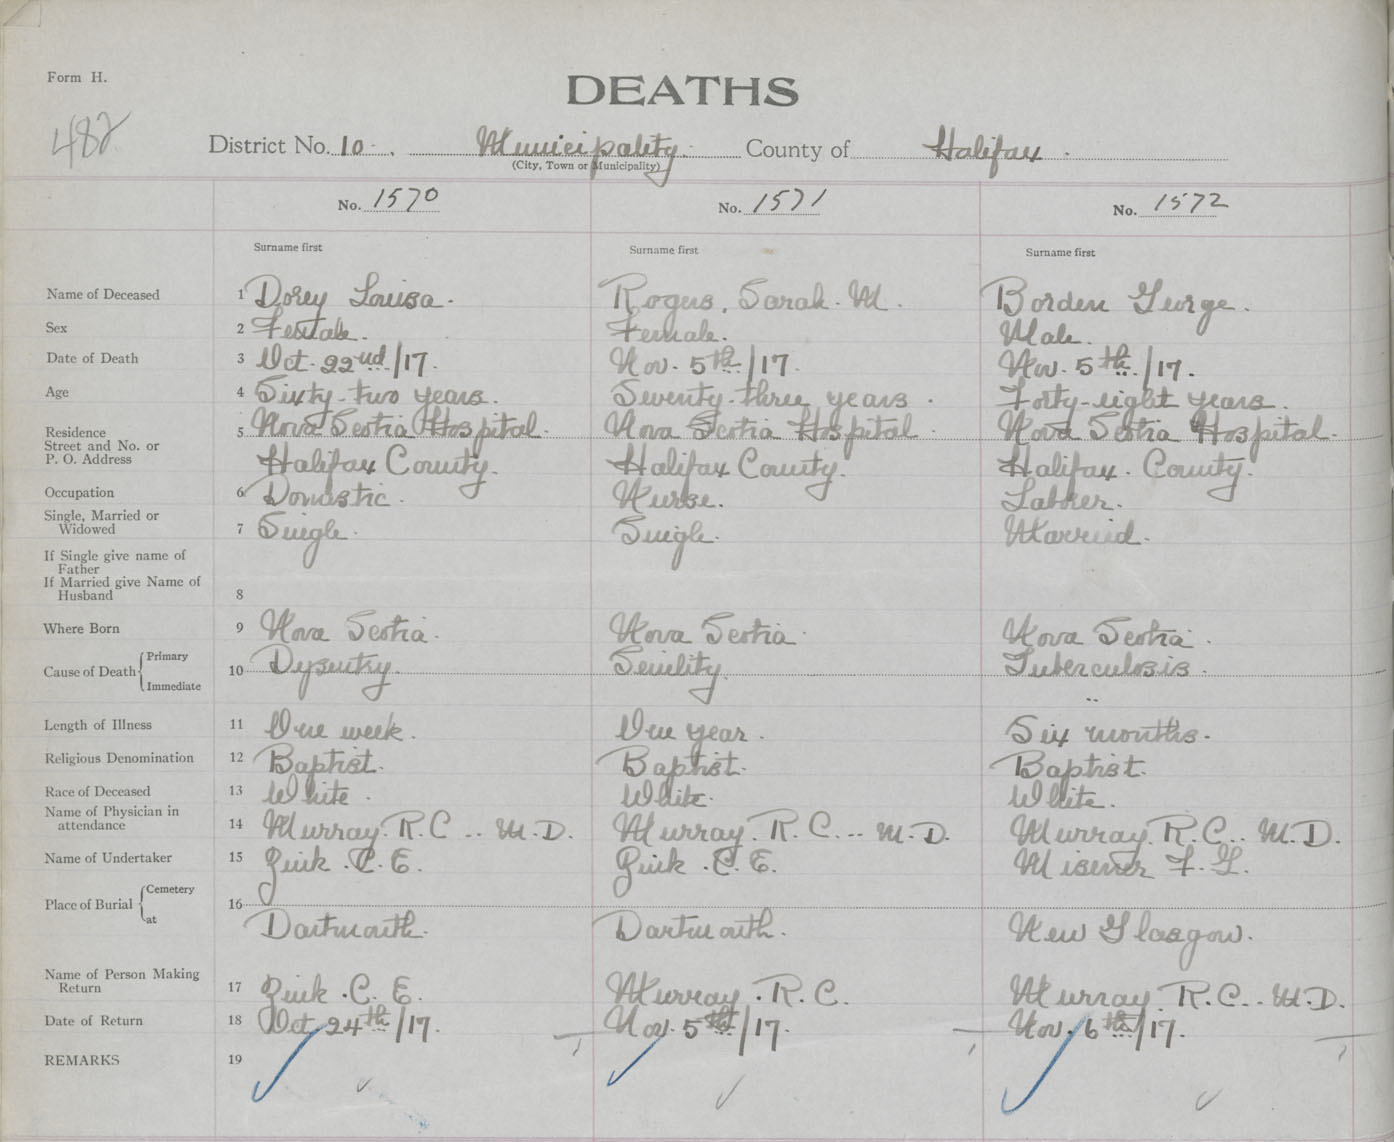 Form H.
DEATHS
482
District No. 10. Municipality. County of Halifax.
(City, Town or Municipality)
No. 1570 No. 1571 No. 1572
Surname first Surname first Surname first
Name of Deceased 1 Dorey Louisa. Rogers, Sarah. M. Borden George.
Sex 2 Female. Female. Male.
Date of Death 3 Oct. 22nd/17. Nov. 5th/17. Nov. 5th/17.
Age 4 Sixty-two years. Seventy-three years. Forty-eight years.
Residence 5 Nova Scotia Hospital. Nova Scotia Hospital. Nova Scotia Hospital.
Street and No. or
P. O. Address Halifax County. Halifax County. Halifax. County.
Occupation 6 Domestic. Nurse. Laborer.
Single, Married or
Widowed 7 Single. Single. Married.
If Single give name of
Father
If Married give Name of
Husband 8
Where Born 9 Nova Scotia. Nova Scotia. Nova Scotia.
Cause of Death Primary 10 Dysentry. Senility. Tuberculosis.
Immediate
Length of Illness 11 One week. One year. Six months.
Religious Denomination 12 Baptist. Baptist. Baptist.
Race of Deceased 13 White. White. White.
Name of Physician in
attendance 14 Murray. R. C. .. M. D. Murray. R. C. .. M. D. Murray. R. C. .. M. D.
Name of Undertaker 15 Zink. C. E. Zink. C. E. Misener F. G.
Place of Burial Cemetery 16
at Dartmouth. Dartmouth. New Glasgow.
Name of Person Making
Return 17 Zink. C. E. Murray. R. C. Murray. R. C. .. M. D.
Date of Return 18 Oct 24th/17. Nov. 5th/17. Nov. 6th/17.
REMARKS 19